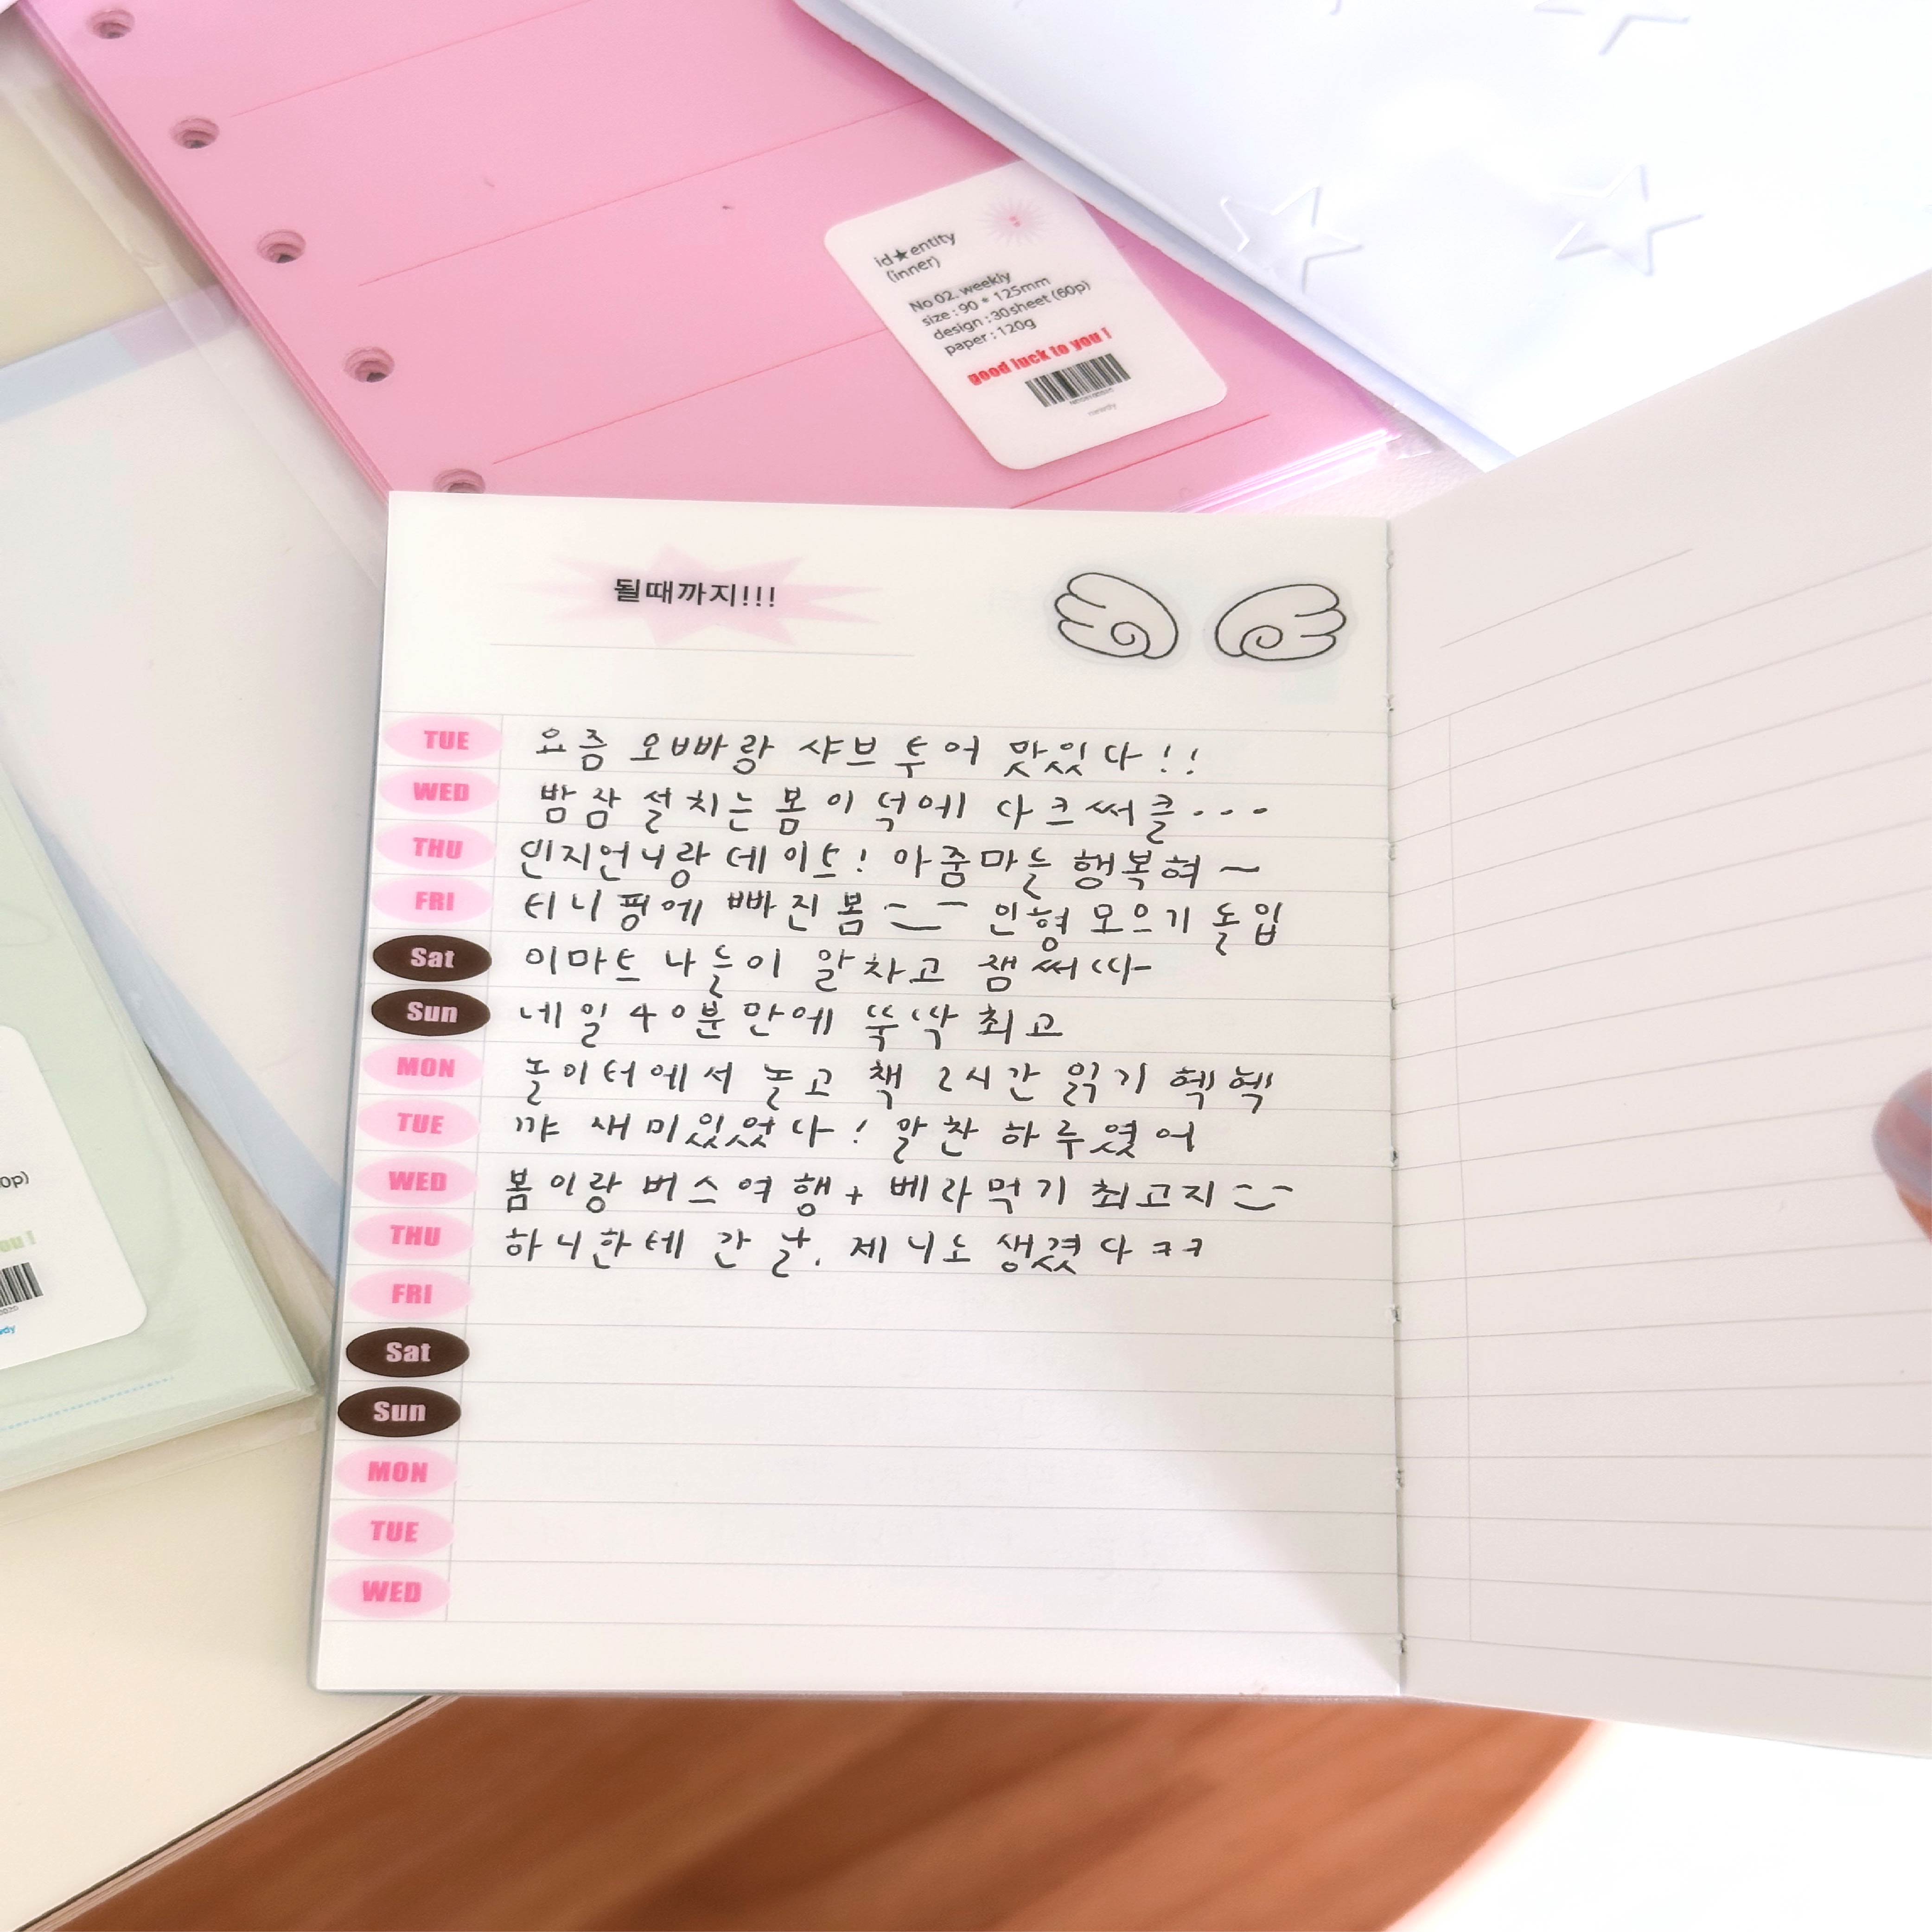 id★entity
(inner)
No 02. weekly
size : 90 * 125mm
design : 30sheet (60p)
paper : 120g
good luck to you !
newdy
될때까지!!!
TUE 요즘 오빠랑 샤브 투어 맛있다!!
WED 밤잠 설치는 봄이 덕에 다크써클...
THU 민지언니랑 데이트! 아줌마는 행복혀~
FRI 티니핑에 빠진 봄 인형 모으기 돌입
Sat 이마트 나들이 알차고 잼써따
Sun 네일 40분만에 뚝딱 최고
MON 놀이터에서 놀고 책 2시간 읽기 헥헥
TUE 꺄 새미있었다! 알찬 하루였어
WED 봄이랑 버스여행+ 베라먹기 최고지
THU 하니한테 간 날. 제니노 생겼다 ㅋㅋ
FRI
Sat
Sun
MON
TUE
WED
0p)
ou !